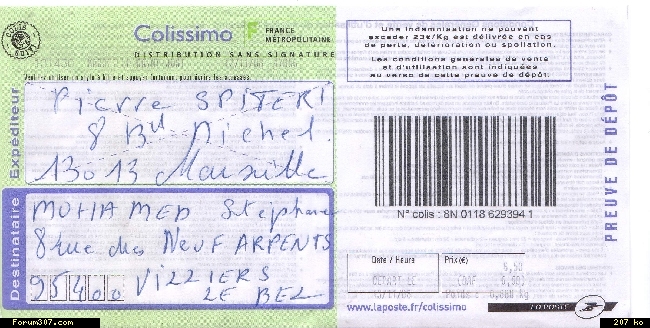 Colissimo
FRANCE
MÉTROPOLITAINE
DISTRIBUTION SANS SIGNATURE
Expéditeur
Pierre SPITERI
8 Bd Michel
13013 Marseille
Destinataire
MOHAMED Stéphane
8 rue des NEUF ARPENTS
95400 VILLIERS
LE BEL
Une indemnisation ne pouvant
excéder 23€/Kg est délivrée en cas
de perte, détérioration ou spoliation.
Les conditions générales de vente
et d'utilisation sont indiquées
au verso de cette preuve de dépôt.
N° colis : 8N 0118 629394 1
PREUVE DE DÉPÔT
Date / Heure
Prix(€)
5,50
www.laposte.fr/colissimo
LA POSTE
Forum307.com
207 ko